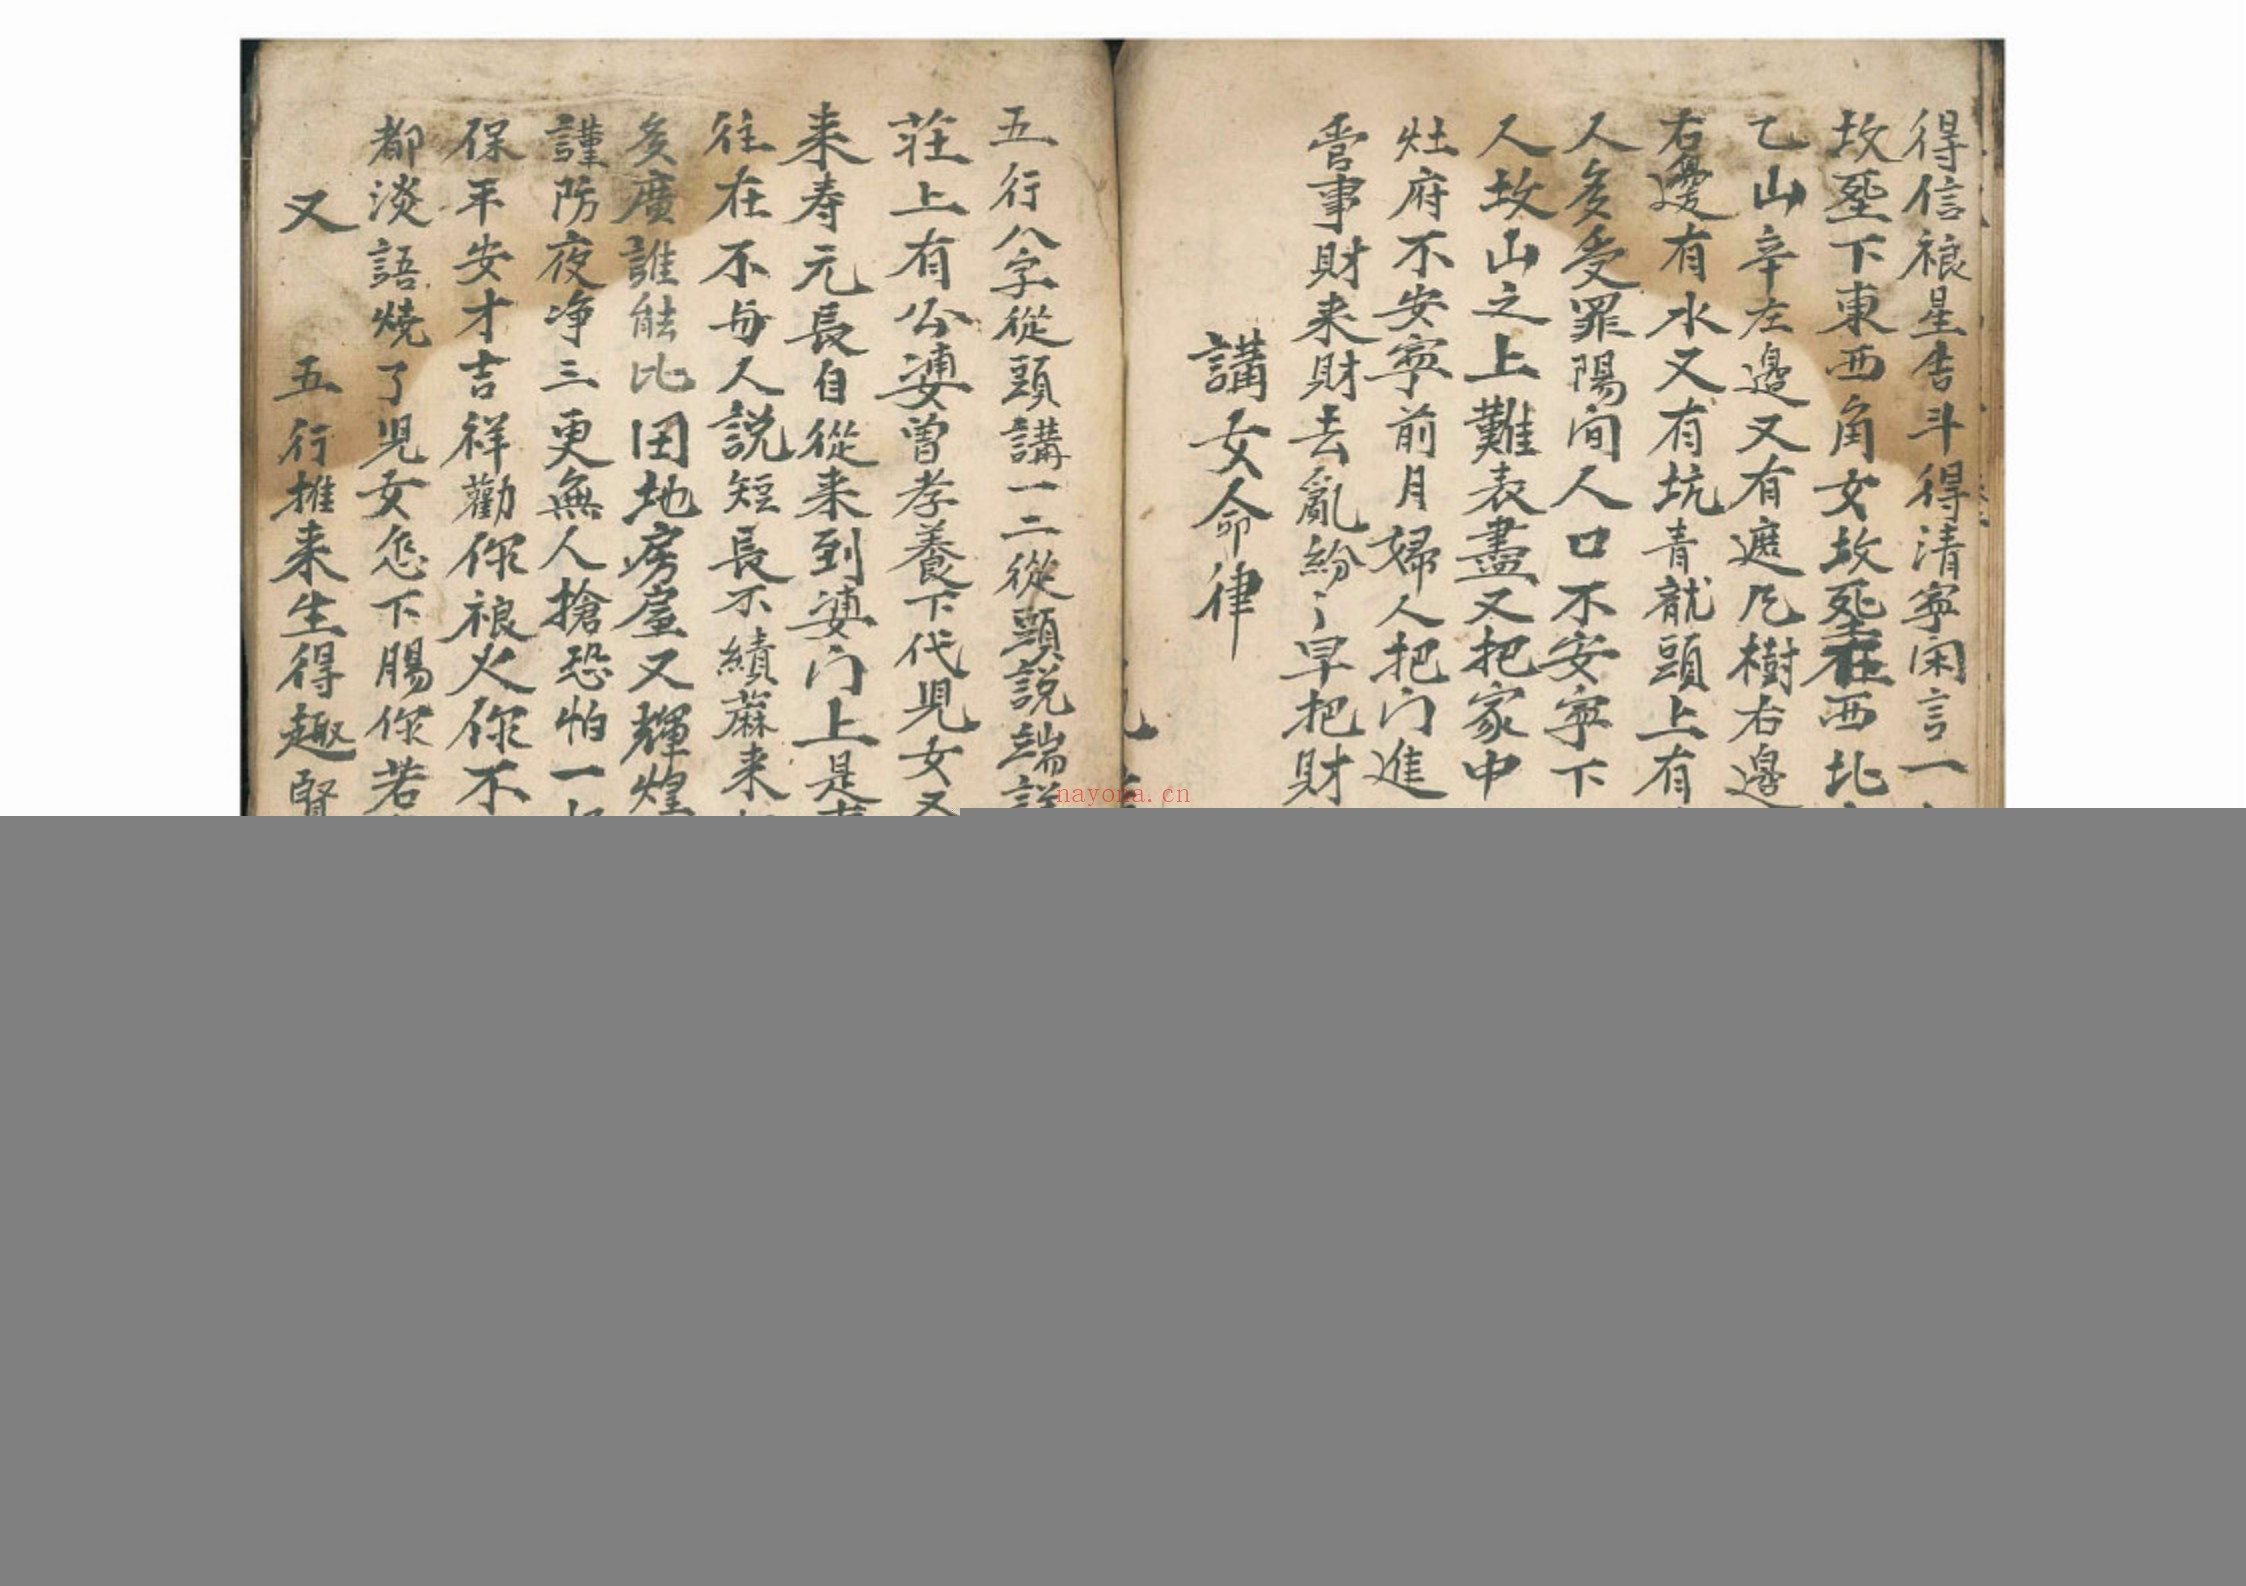 得信祿星吉斗得清寧闲言一
故聖下東西角女故死在西北
乙山辛左邊又有遮凡樹右邊
右邊有水又有坑青龍頭上有
人多受罪陽间人口不安寧下
人故山之上難表盡又把家中
灶府不安寧前月婦人把门進
事財来財去亂紛〻早把財
講女命律
五行八字從頭講一二從頭説端詳
莊上有公婆曾孝養下代児女又
来寿元長自從来到婆门上是
往在不与人説短長不績蔴来
多廣誰能比田地房屋又輝煌
謹防夜净三更無人搶恐怕一
保平安才吉祥勸你祿火你不
都淡語燒了児女怎下腸你若
又　五行推来生得趣賢
nayona.cn